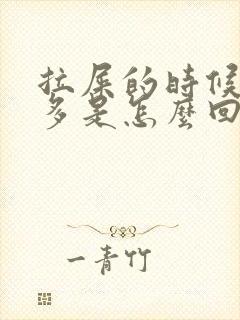 拉屎的時候
多是怎麼回
一青竹